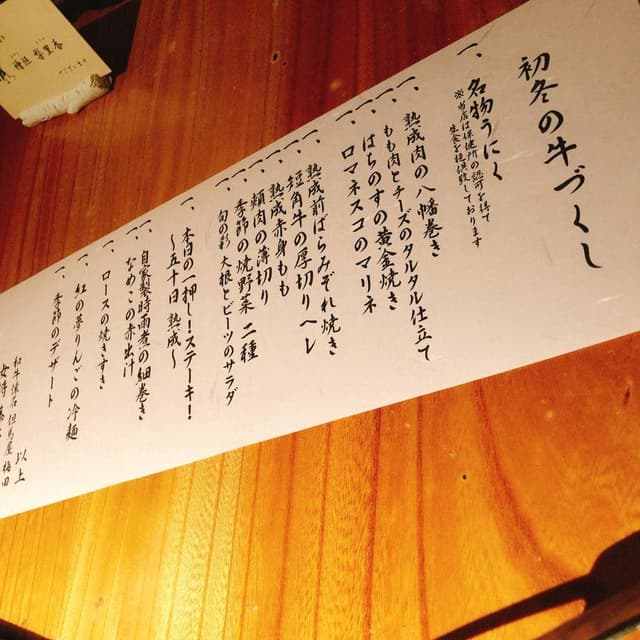 初冬の牛づくし
一、名物うにく
※当店は保健所の認可を得て
生食を提供致しております
一、熟成肉の八幡巻き
一、もも肉とチーズのタルタル仕立て
一、はちのすの黄金焼き
一、ロマネスコのマリネ
一、熟成前ばらみぞれ焼き
一、短角牛の厚切りヘレ
一、熟成赤身もも
一、頬肉の薄切り
一、季節の焼野菜 二種
一、旬の彩 大根とビーツのサラダ
一、本日の一押し!ステーキ!
〜五十日熟成〜
一、自家製時雨煮の細巻き
一、なめこの赤出汁
一、ロースの焼きすき
一、紅の夢りんごの冷麺
一、季節のデザート
以上
和牛懐石 但馬屋 梅田